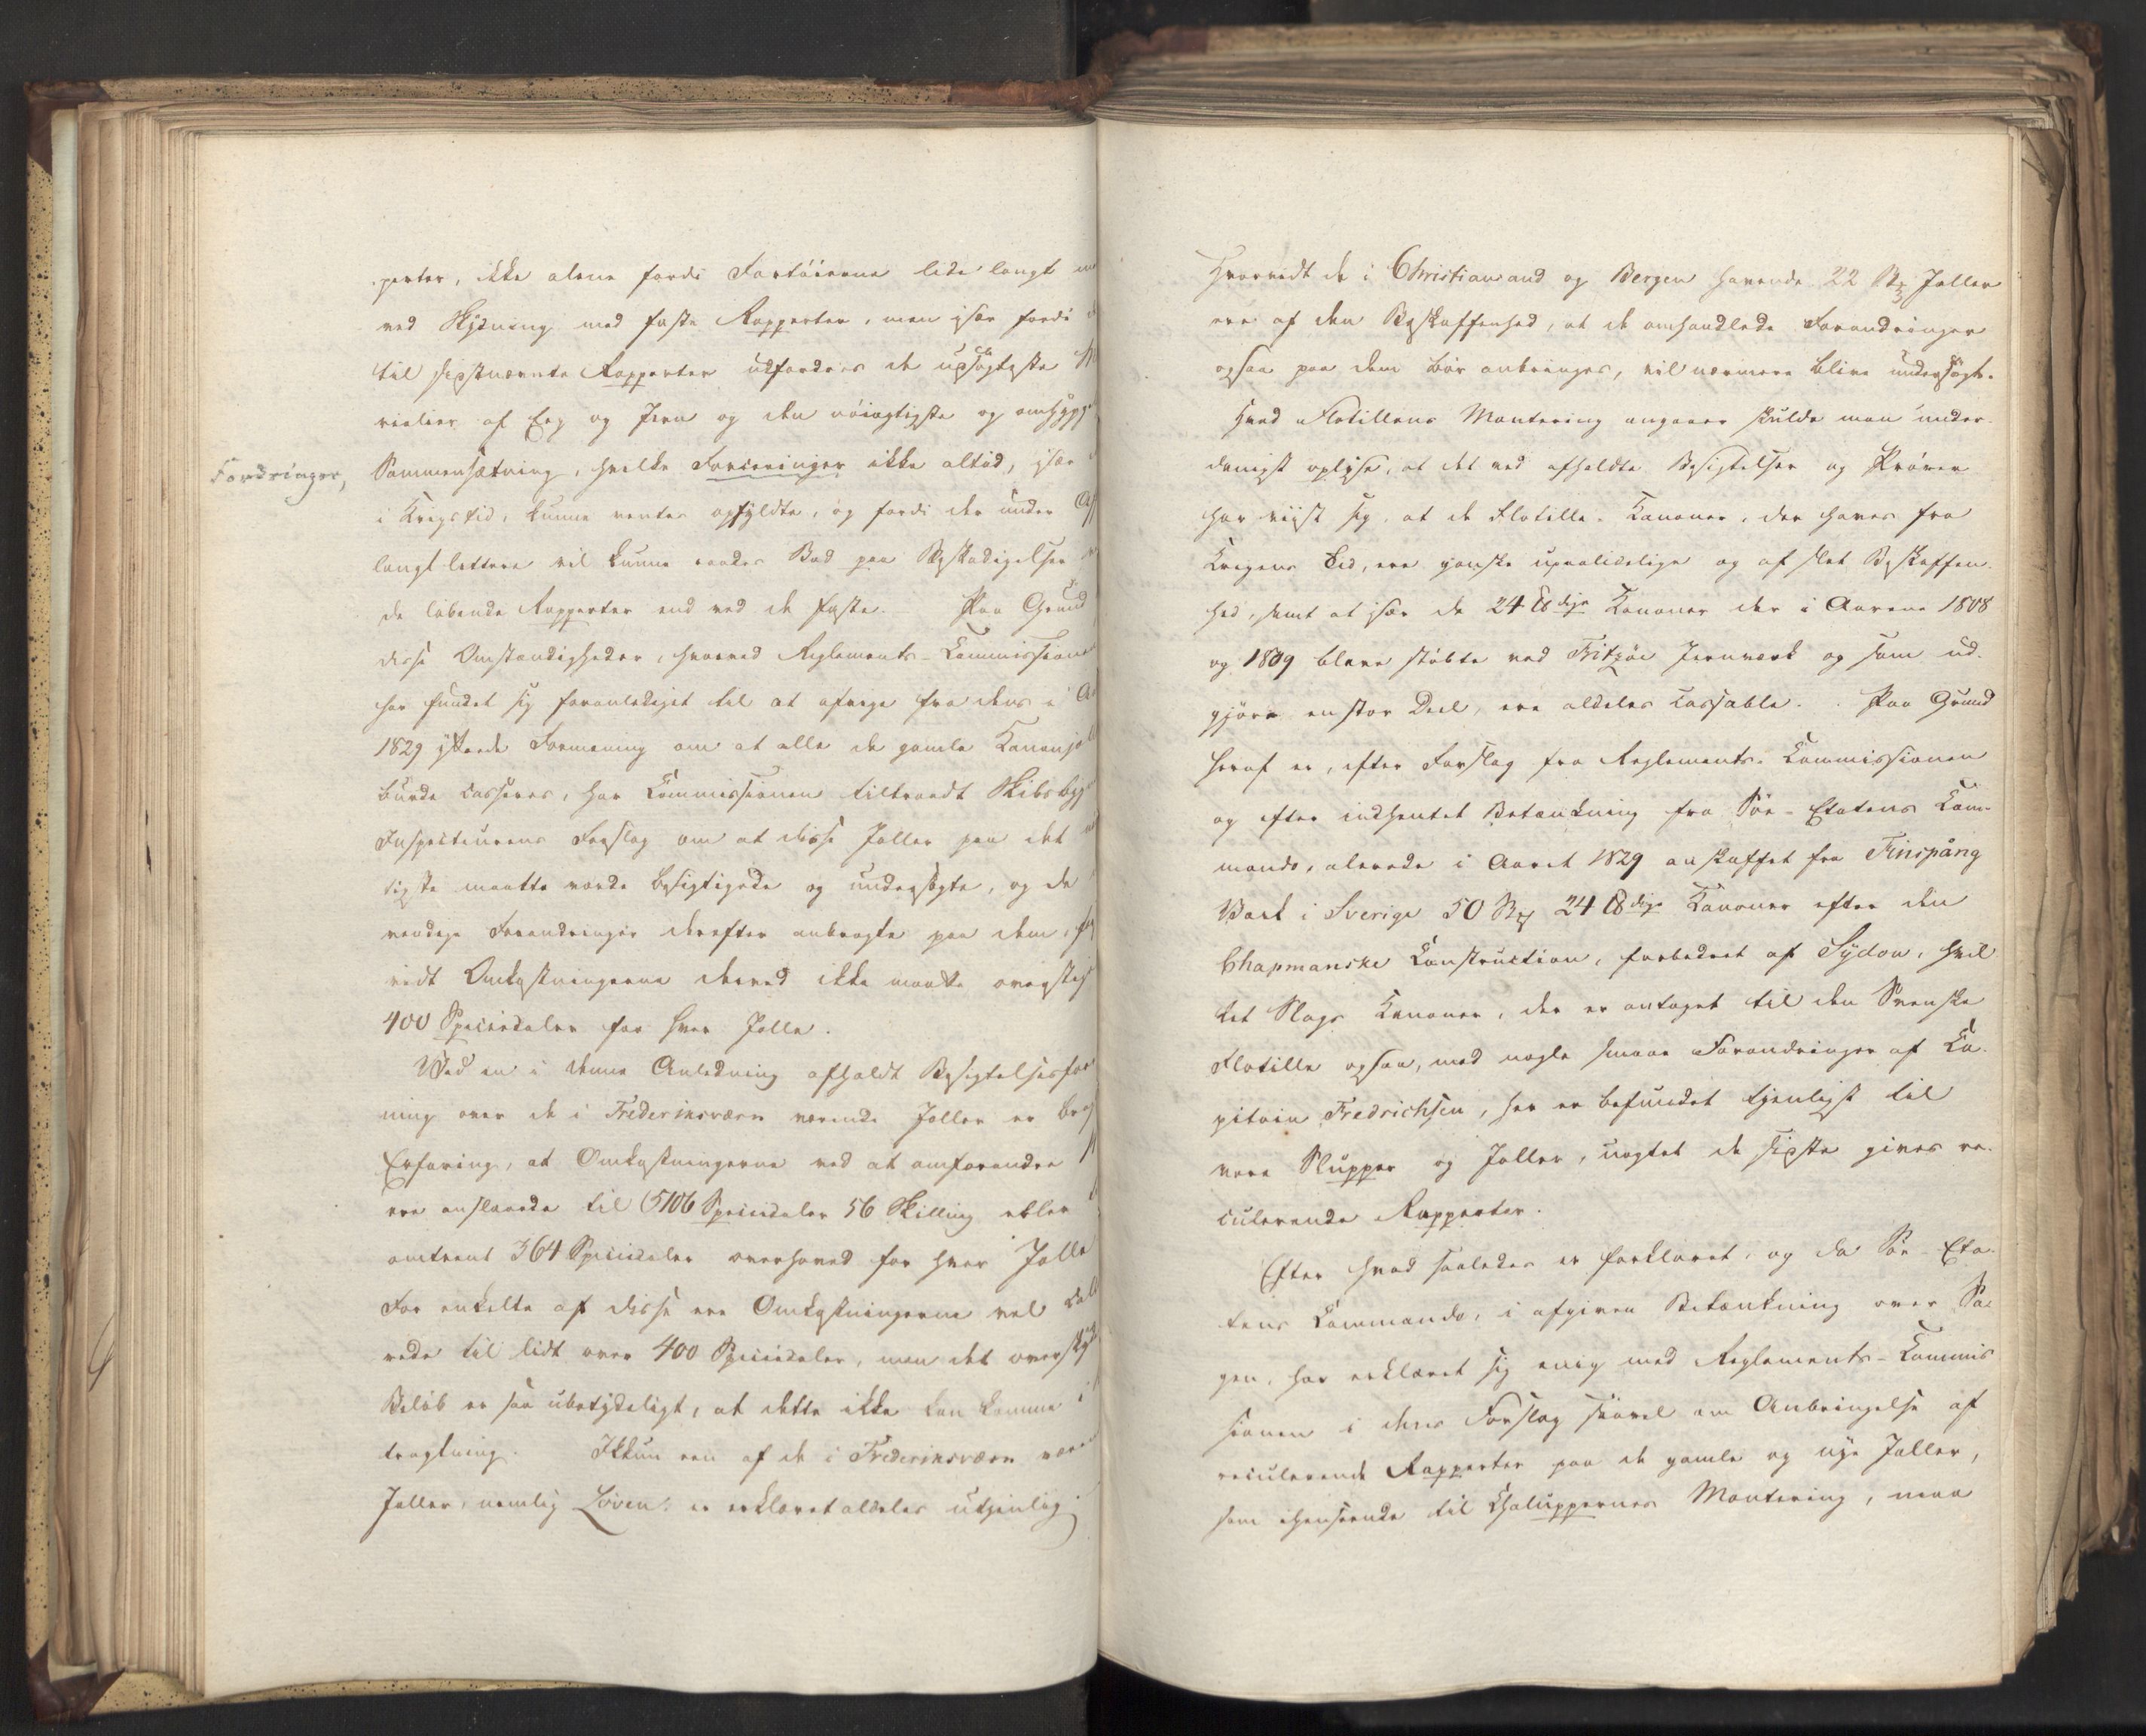 perter, ikke alene fordi Fartöierne lide langt
ved Skydning med faste Rapperter, men især fordi
til sidstnævnte Rapperter udfordres de udsøgteste
rialier af Eeg og Jern og den nöiagtigste og omhygge
Fordringer,
Sammensætning, hvilke Forcieringer ikke altid, især
i Krigstid, kunne ventes opfyldte, og fordi der under
langt lettere vil kunne raades Bod paa Beskadigelser
de løbende Rapperter end ved de faste. Paa Grund
disse Omstændigheder, hvorved Reglements-Commissione
har fundet sig foranlediget til at afvige fra dens i
1829 yttrede Formening om at alle de gamle Kanonjol
burde casseres, har Commissionen tiltraadt Skibsbygge
Inspecteurens Forslag om at disse Joller paa det
tigste maatte vorde besigtigede og undersøgte, og de
vendige Forandringer derefter anbragte paa dem,
vidt Omkostningerne derved ikke maatte overstige
400 Speciedaler for hver Jolle.
Ved en i denne Anledning afholdt Besigtelsesfor
ning over de i Frederiksværn værende Joller er brag
Erfaring, at Omkostningerne ved at omforandre
ere anslaaede til 5106 Speciedaler 56 Skilling eller
omtrent 364 Speciedaler overhoved for hver Jolle
For enkelte af disse ere Omkostningerne vel cal
rede til lidt over 400 Speciedaler, men det overskyd
Beløb er saa ubetydeligt, at dette ikke kan komme i
tragtning. Ikkun een af de i Frederiksværn være
Joller, nemlig Løven, er erklæret aldeles utjenlig.
Hvorvidt de i Christiansand og Bergen havende 22 Stkr Joller
ere af den Beskaffenhed, at de omhandlede Forandringer
ogsaa paa dem bör anbringes, vil nærmere blive undersögt.
Hvad Flotillens Montering angaaer skulde man under-
danigst oplyse, at det ved afholdte Besigtelser og Pröver
har viist sig, at de Flotille-Kanoner, der haves fra
Krigens Tid, ere ganske upaalidelige og af slet Beskaffen-
hed, samt at især de 24 ℔dige Kanoner der i Aarene 1808
og 1809 bleve støbte ved Fritzöe Jernværk og som ud-
gjøre en stor Deel, ere aldeles cassable. Paa Grund
heraf er, efter Forslag fra Reglements-Commissionen
og efter indhentet Betænkning fra Söe-Etatens Com-
mando, allerede i Aaret 1829 anskaffet fra Finspång
Værk i Sverige 50 Stkr 24 ℔dige Kanoner efter den
Chapmanske Construction, forbedret af Sydow, hvil-
ket Slags Kanoner, der er antaget til den Svenske
Flotille ogsaa, med nogle smaae Forandringer af Ca-
pitain Fredrichsen, her er befundet tjenligst til
vore Slupper og Joller, uagtet de sidste gives re-
culerende Rapperter.
Efter hvad saaledes er forklaret, og da Söe-Eta-
tens Commando, i afgiven Betænkning over Sa-
gen, har erklæret sig enig med Reglements-Commis
sionen i dens Forslag saavel om Anbringelse af
reculerende Rapperter paa de gamle og nye Joller,
som ihenseende til Chaluppernes Montering, maa